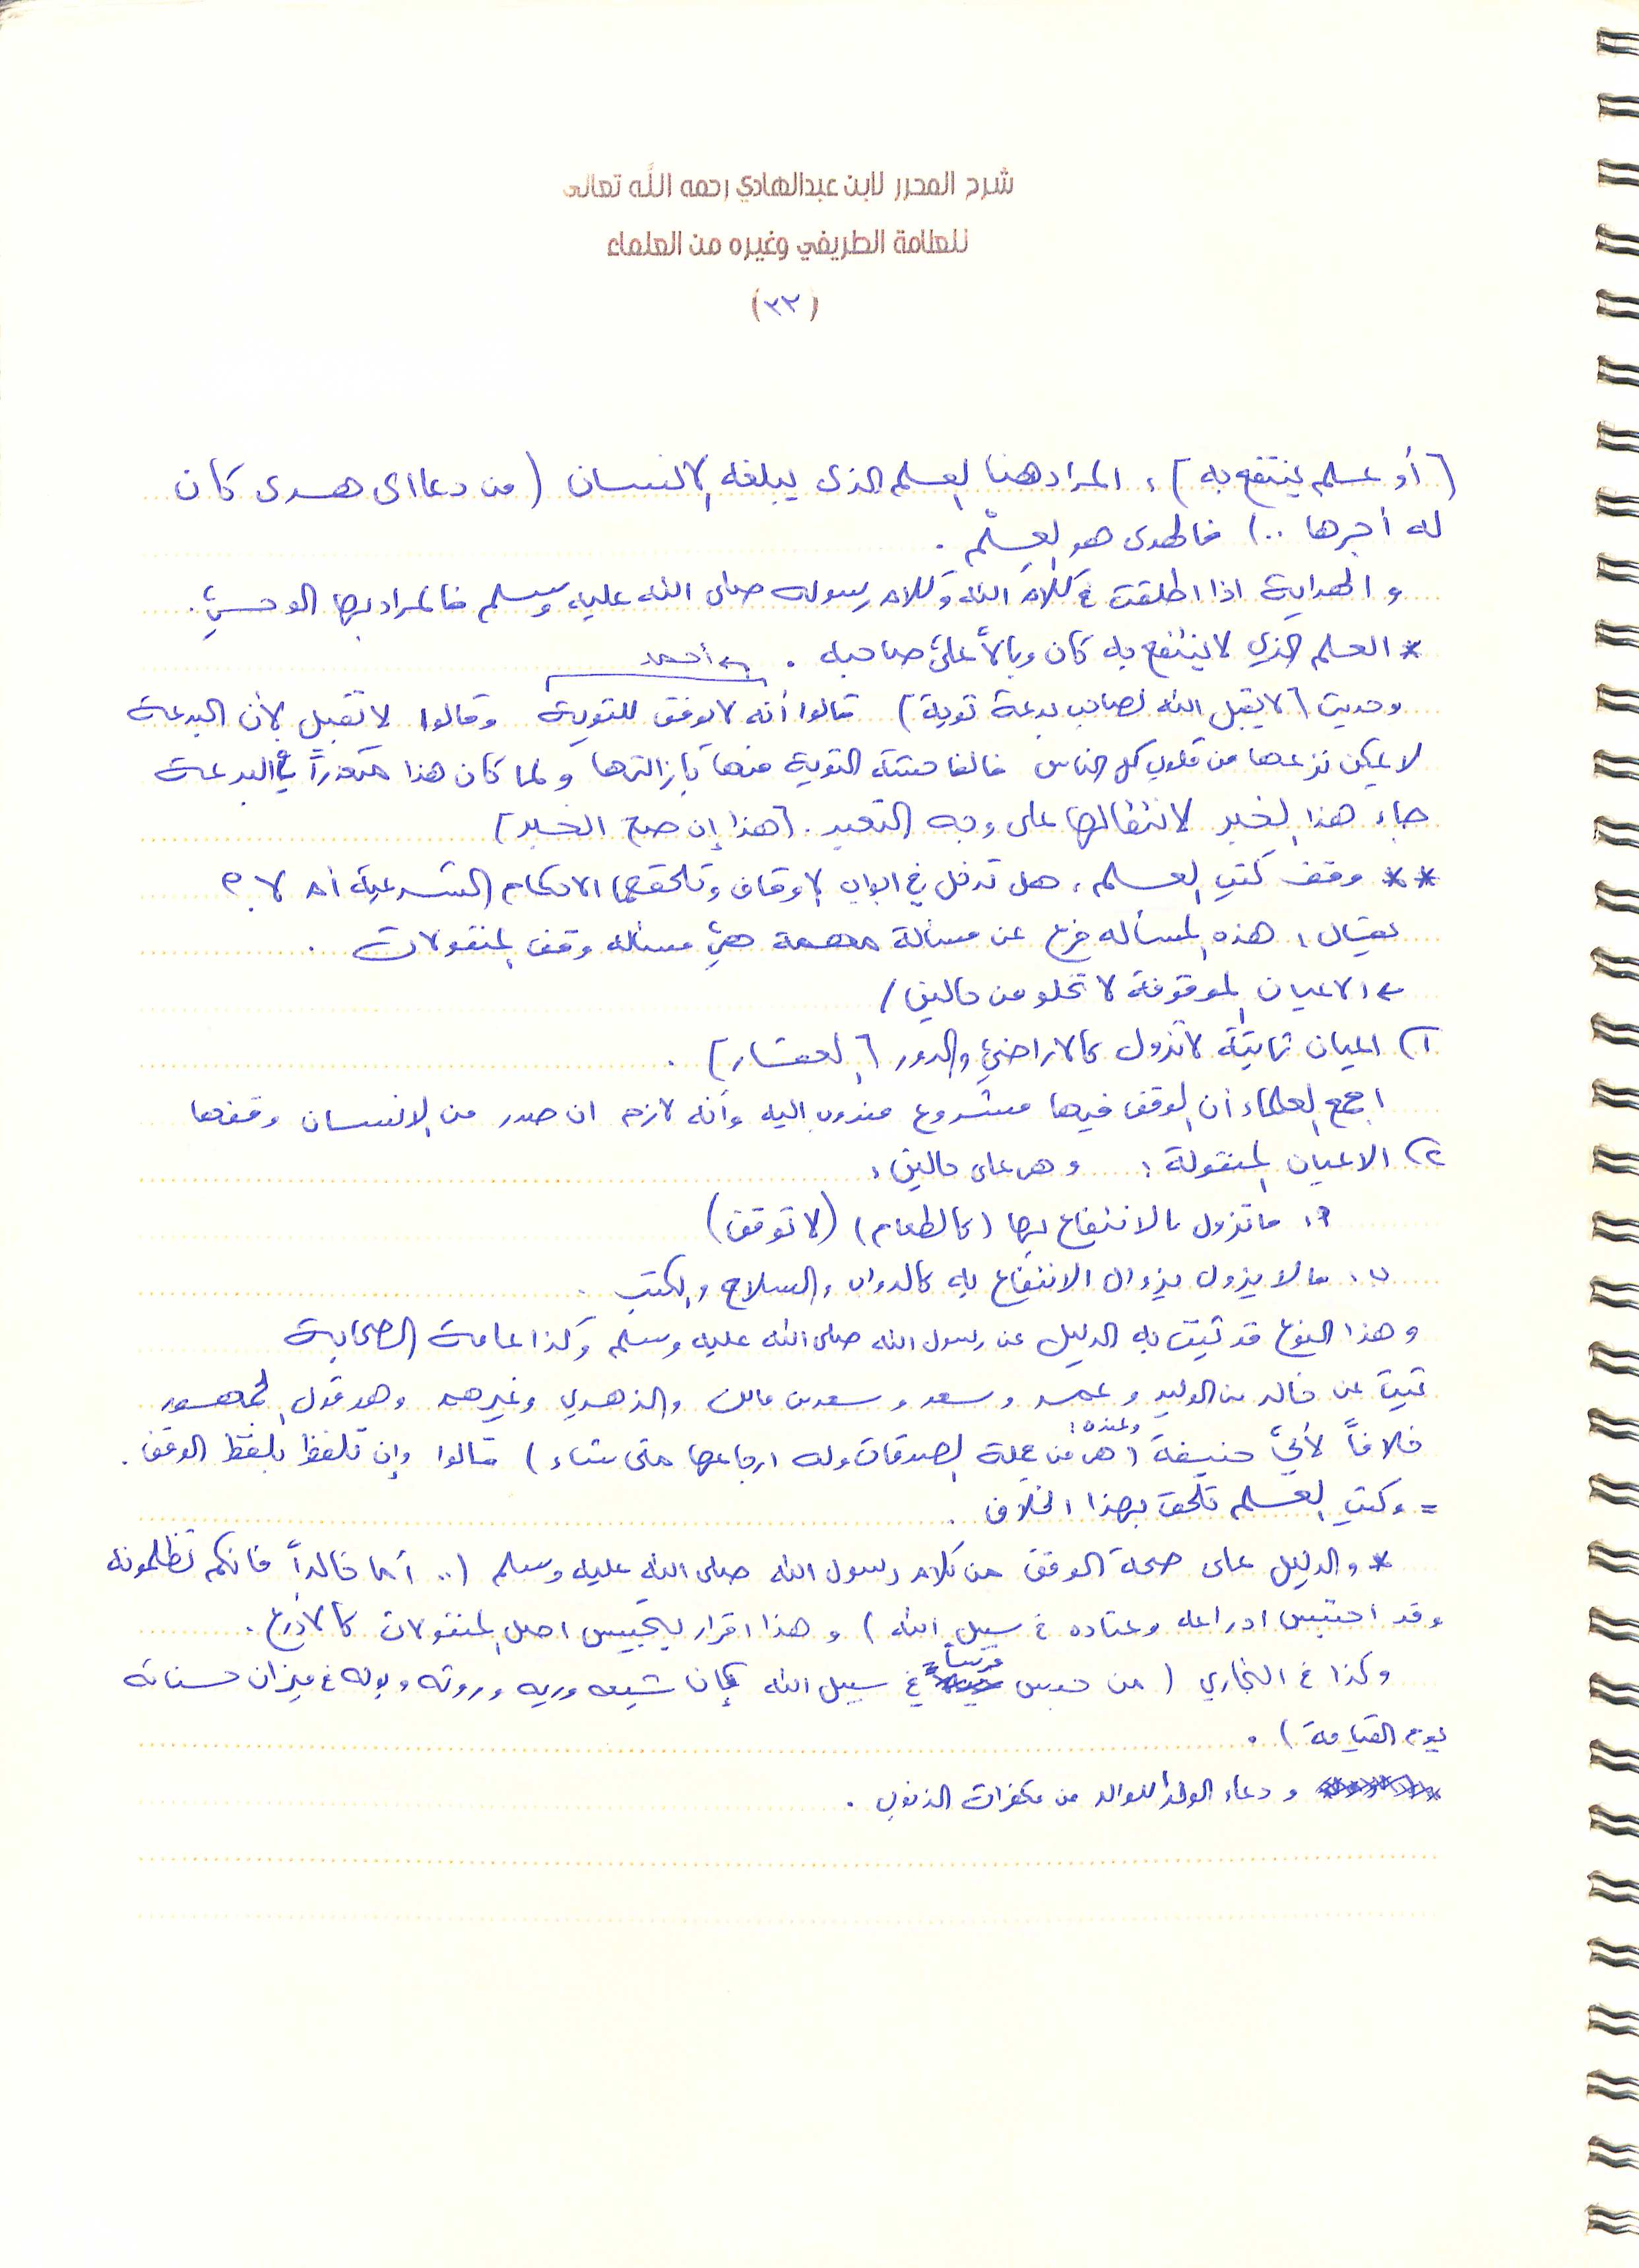 شرح المحرر لابن عبدالهادي رحمه الله تعالى
للعلامة الطريفي وغيره من العلماء
(٣٢)
[أو علم ينتفع به] ، المراد هنا العلم الذي يبلغه الإنسان (من دعا الى هدى كان
له أجرها ..) فالهدى هو العِلْم .
و الهداية اذا اطلقت في كلام الله وكلام رسوله صلى الله عليه وسلم فالمراد بها الوحيُ .
* العلم الذي لا ينتفع به كان وبالاً على صاحبه .
← أحمد
وحديث [لا يقبل الله لصاحب بدعة توبة] قالوا أنه لا يوفق للتوبة وقالوا لا تقبل لأن البدعة
لا يمكن نزعها من قلوب كل الناس فالفاحشة التوبة منها بإزالتها ولما كان هذا متعذراً في البدعة
جاء هذا الخبر لانتقالها على وجه التعبد . [هذا إن صح الخبر]
** وقف كتب العلم ، هل تدخل في ابواب الاوقاف وتلحقها الاحكام الشرعية أم لا ؟
يقال : هذه المسأله فرع عن مسألة مهمة هي مسأله وقف المنقولات .
← الاعيان الموقوفة لا تخلو من حالين /
١) اعيان ثابتة لا تزول كالاراضي والدور [العقار] .
اجمع العلماء أن الوقف فيها مشروع مندوب اليه وأنه لازم ان صدر من الانسان وقفها
٢) الاعيان المنقولة : وهي على حالين :
أ. ما تزول بالانتفاع بها (كالطعام) (لا توقف)
ب. مالا يزول بزوال الانتفاع به كالدواب والسلاح والكتب .
وهذا النوع قد ثبت به الدليل عن رسول الله صلى الله عليه وسلم وكذا عامة الصحابة
ثبت عن خالد بن الوليد و عمر و سعد و سعد بن مالك والزهري وغيرهم وهو قول الجمهور
وعنده :
خلافاً لأبي حنيفة (هي من جملة الصدقات وله ارجاعها متى شاء) قالوا وإن تلفظ بلفظ الوقف .
= وكتب العلم تلحق بهذا الخلاف .
* والدليل على صحة الوقف من كلام رسول الله صلى الله عليه وسلم (.. أما خالداً فانكم تظلمونه
وقد احتبس ادراعه وعتاده في سبيل الله) و هذا اقرار بتحبيس اصل المنقولات كالأدرع .
فرساً
وكذا في البخاري (من حبس في سبيل الله كان شبعه وريه وروثه وبوله في ميزان حسناته
يوم القيامة) .
و دعاء الولد للوالد من مكفرات الذنوب .